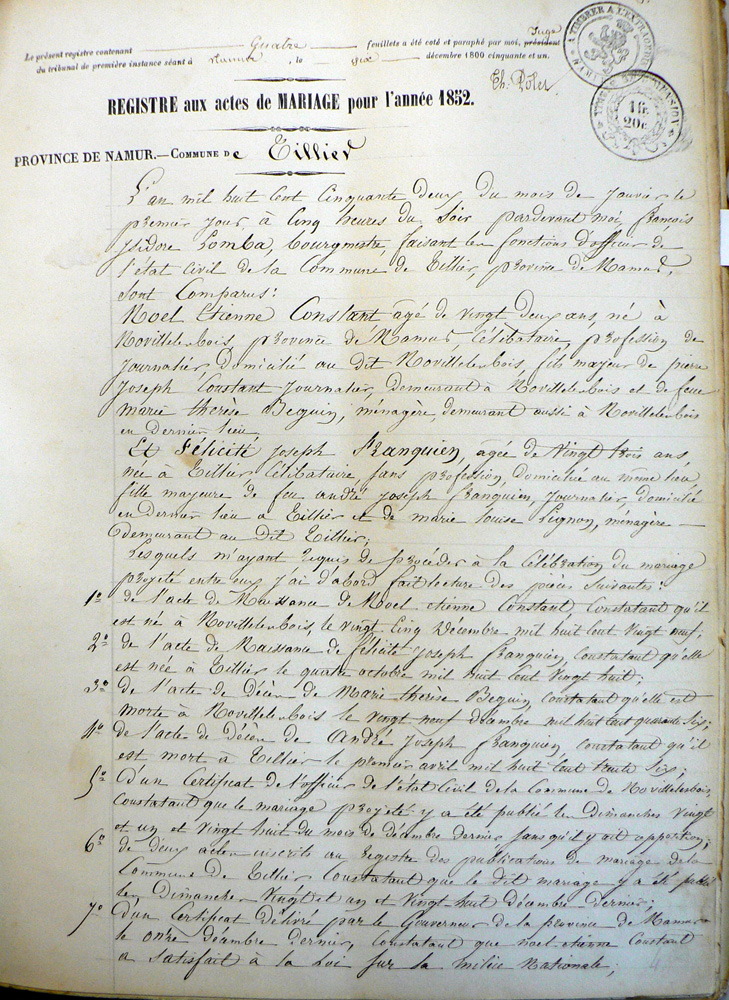 Le présent registre contenant Quatre feuillets a été coté et paraphé par moi, président Juge
du tribunal de première instance séant à Namur, le six décembre 1800 cinquante et un.
REGISTRE aux actes de MARIAGE pour l'année 1852.
A TIMBRER A L'EXTRAORD
1 fr.
20c.
PROVINCE DE NAMUR.—COMMUNE De Tillier
L'an mil huit cent Cinquante Deux du mois de Janvier le
premier jour, à Cinq heures du Soir pardevant moi, François
Isidore Lomba, bourgmestre, faisant les fonctions d'officier de
l'état Civil de la Commune de Tillier, province de Namur,
sont Comparus:
Noel Etienne Constant agé de vingt Deux ans, né à
Novillelesbois, province de Namur, Célibataire, profession de
journalier, Domicilié au dit Novillelesbois, fils majeur de pierre
joseph Constant journalier, Demeurant à Novillelesbois et de feue
marie thérèse Bequin, ménagère, demeurant aussi à Novillelesbois
en Dernier lieu.
Et Félicité joseph Franquien, agée de Vingt trois ans
née à Tillier Célibataire, sans profession, Domiciliée au même lieu,
fille majeure de feu andré joseph franquien, journalier domicilié
en dernier lieu à Tillier et de marie louise Pignon, ménagère —
Demeurant au Dit Tillier;
Lesquels m'ayant Requis de procéder à la Célébration du mariage
projeté entre eux j'ai d'abord fait lecture des pièces Suivantes:
1º de l'acte de Naissance de Noel etienne Constant, Constatant qu'il
est né à Novillelesbois, le vingt Cinq Décembre mil huit Cent Vingt neuf;
2º de l'acte de Naissance de félicité joseph franquien, Constatant qu'elle
est née à Tillier le quatre octobre mil huit Cent Vingt huit;
3º de l'acte de Décès de Marie thérèse Bequin constatant qu'elle est
morte à Novillelesbois le vingt neuf décembre mil huit Cent quarante Six;
4º de l'acte de décès de André Joseph franquien, constatant qu'il
est mort à Tillier le premier avril mil huit Cent trente Six;
5º D'un Certificat de l'officier de l'état Civil de la Commune de Novillelesbois,
Constatant que le mariage projeté y a été publié les Dimanches Vingt
et un et Vingt huit du mois de décembre dernier sans qu'il y ait opposition;
6º de deux actes inscrits au Registre des publications de mariage de la
Commune de Tillier Constatant que le dit mariage y a été publié
les Dimanches Vingt et un et Vingt huit Décembre Dernier;
7º D'un Certificat Délivré par le Gouverneur de la province de Namur
le onze Décembre dernier, Constatant que noel etienne Constant
a Satisfait à la Loi sur la milice Nationale;